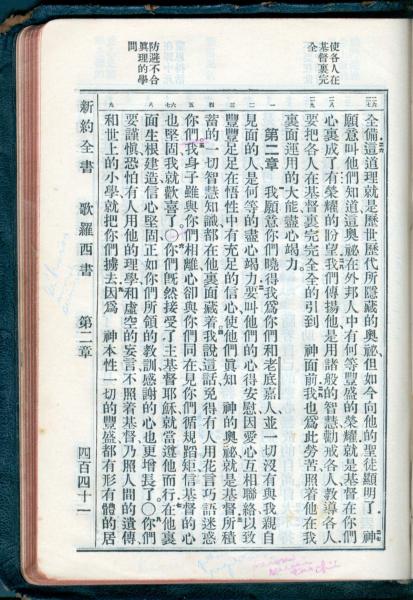 使各人在
基督裏完
全
防避不合
眞理的學
問
全備這道理就是歷世歷代所隱藏的奧祕但如今向他的聖徒顯明了 神
願意叫他們知道這奧祕在外邦人中有何等豐盛的榮耀就是基督在你們
心裏成了有榮耀的盼望我們傳揚他是用諸般的智慧勸戒各人教導各人
要把各人在基督裏完完全全的引到 神面前我也爲此勞苦照着他在我
裏面運用的大能盡心竭力
第二章 我願意你們曉得我爲你們和老底嘉人並一切沒有與我親自
見面的人是何等的盡心竭力要叫他們的心得安慰因愛心互相聯絡以致
豐豐足足在悟性中有充足的信心使他們眞知 神的奧祕就是基督所積
蓄的一切智慧知識都在他裏面藏着我說這話免得有人用花言巧語迷惑
你們我身子雖與你們相離心卻與你們同在見你們循規蹈矩信基督的心
也堅固我就歡喜了○你們旣然接受了主基督耶穌就當遵他而行在他裏
面生根建造信心堅固正如你們所領的教訓感謝的心也更增長了○你們
要謹愼恐怕有人用他的理學和虛空的妄言不照着基督乃照人間的遺傳
和世上的小學就把你們擄去因爲 神本性一切的豐盛都有形有體的居
新約全書 歌羅西書 第二章 四百四十一